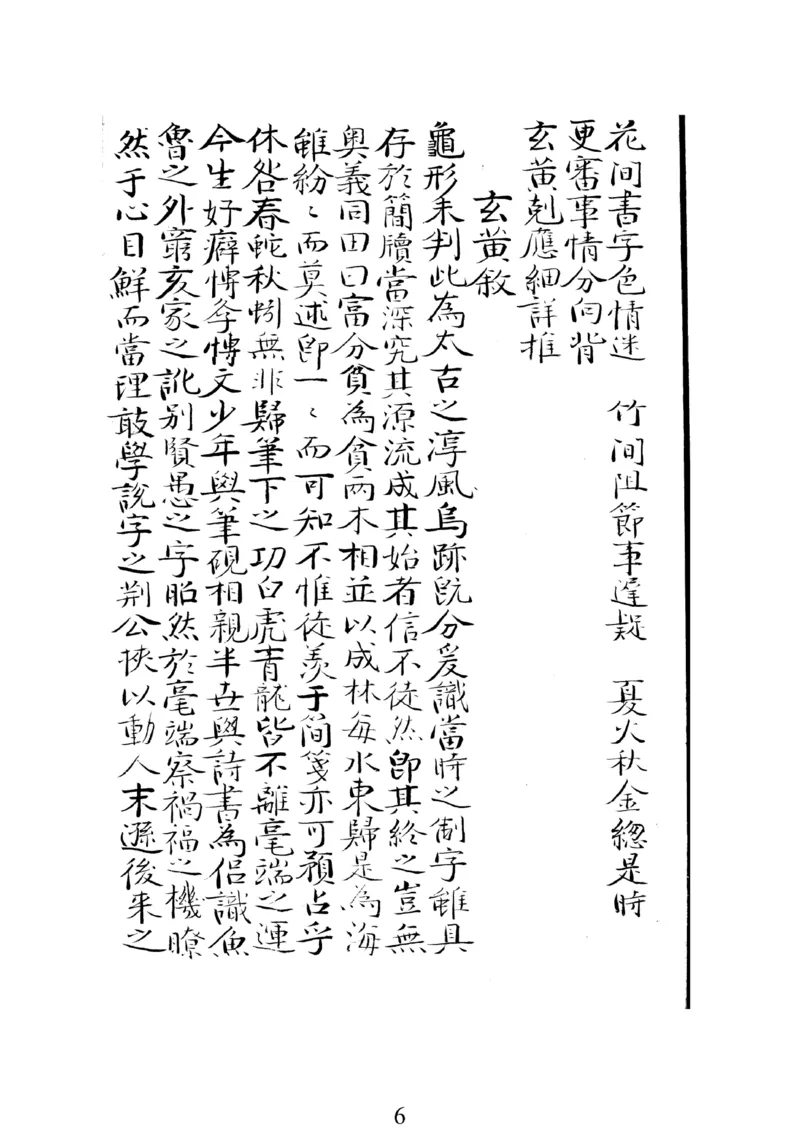 花间書字色情迷　竹间阻節事遲疑　夏火秋金總是時
更審事情分向背
玄黃剋應細詳推
玄黃敘
龜形未判此為太古之淳風鳥跡旣分爰識當時之制字雖具
存於簡牘當深究其源流成其始者信不徒然卽其終之豈無
奥義同田曰富分貝為貧兩木相並以成林每水東歸是為海
雖紛〻而莫述卽一〻而可知不惟徒羨于简箋亦可預占乎
休咎春蛇秋蚓無非歸筆下之功白虎青龍皆不離毫端之運
今生好癖愽学愽文少年與筆硯相親半世與詩書為侣識魚
魯之外窮亥家之訛别賢愚之字昭然於毫端察禍福之機瞭
然于心目鮮而當理敢學說字之荆公挾以動人末遜後来之
6